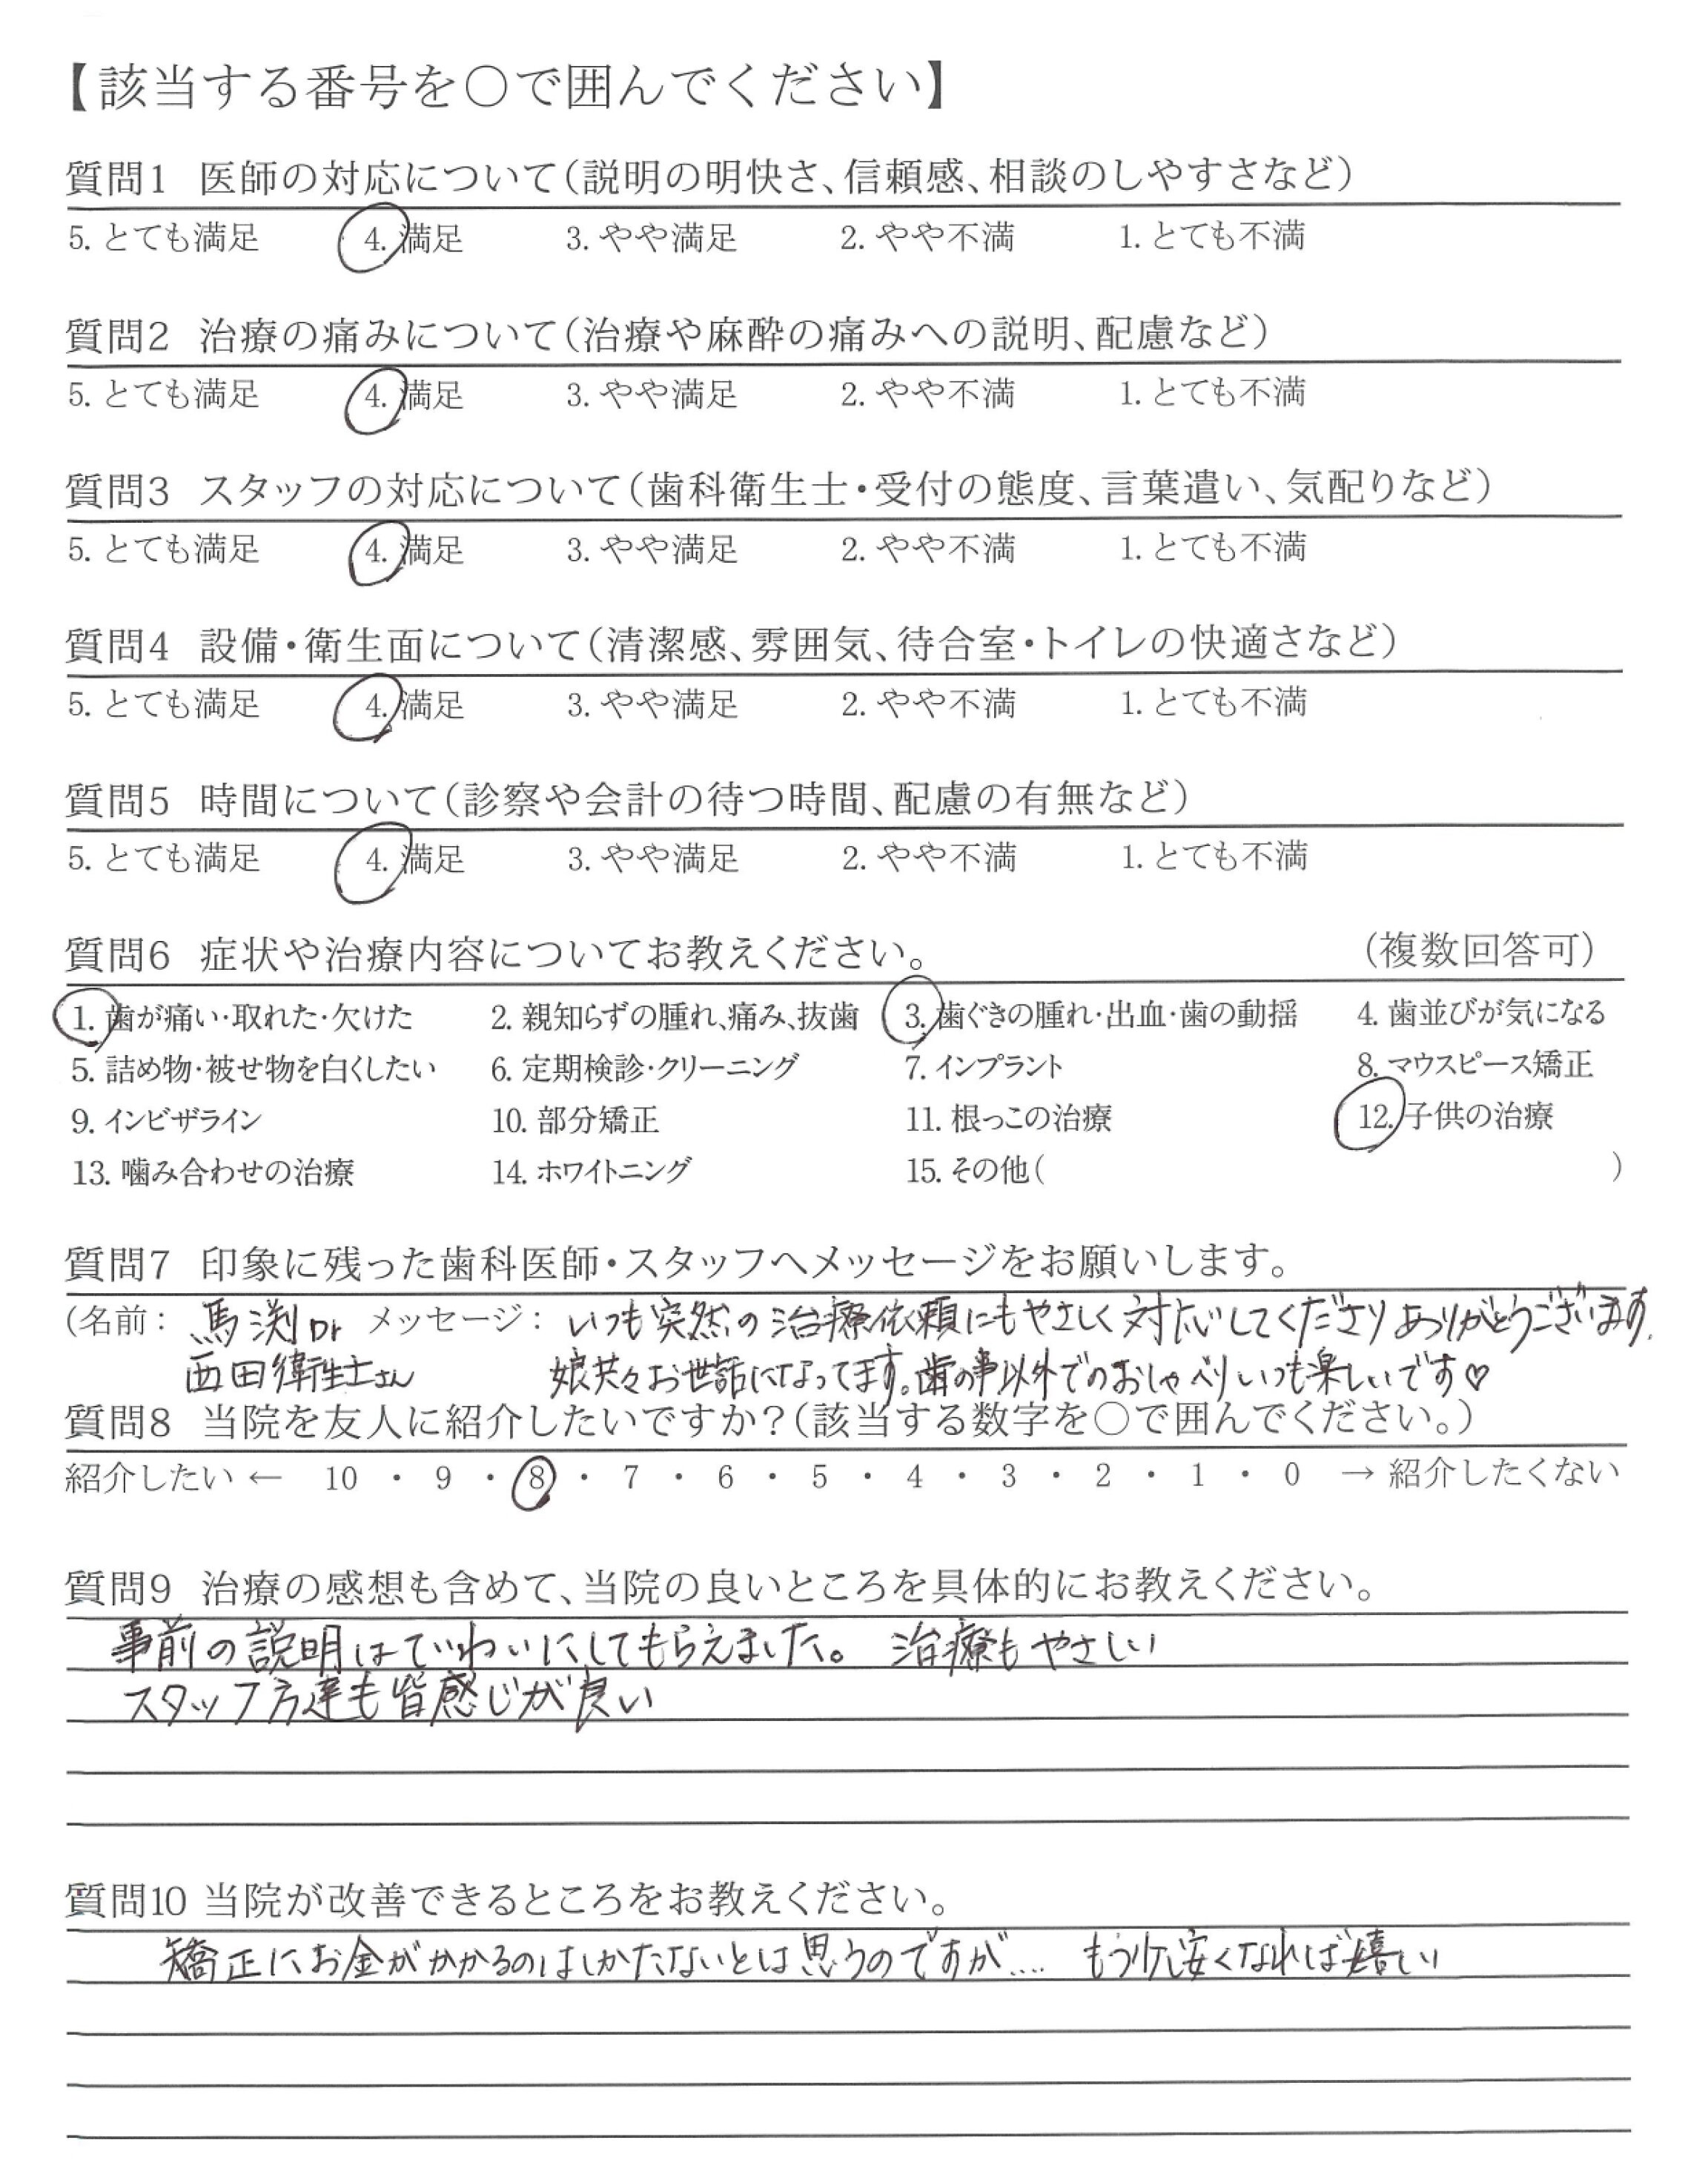 【該当する番号を〇で囲んでください】
質問1 医師の対応について(説明の明快さ、信頼感、相談のしやすさなど)
5. とても満足 4. 満足 3. やや満足 2. やや不満 1. とても不満
質問2 治療の痛みについて(治療や麻酔の痛みへの説明、配慮など)
5. とても満足 4. 満足 3. やや満足 2. やや不満 1. とても不満
質問3 スタッフの対応について(歯科衛生士・受付の態度、言葉遣い、気配りなど)
5. とても満足 4. 満足 3. やや満足 2. やや不満 1. とても不満
質問4 設備・衛生面について(清潔感、雰囲気、待合室・トイレの快適さなど)
5. とても満足 4. 満足 3. やや満足 2. やや不満 1. とても不満
質問5 時間について(診察や会計の待つ時間、配慮の有無など)
5. とても満足 4. 満足 3. やや満足 2. やや不満 1. とても不満
質問6 症状や治療内容についてお教えください。 (複数回答可)
1. 歯が痛い・取れた・欠けた 2. 親知らずの腫れ、痛み、抜歯 3. 歯ぐきの腫れ・出血・歯の動揺 4. 歯並びが気になる
5. 詰め物・被せ物を白くしたい 6. 定期検診・クリーニング 7. インプラント 8. マウスピース矯正
9. インビザライン 10. 部分矯正 11. 根っこの治療 12. 子供の治療
13. 噛み合わせの治療 14. ホワイトニング 15. その他( )
質問7 印象に残った歯科医師・スタッフへメッセージをお願いします。
(名前: 馬渕Dr メッセージ: いつも突然の治療依頼にもやさしく対応してくださりありがとうございます。
西田衛生士さん 娘共々お世話になってます。歯の事以外でのおしゃべりいつも楽しいです♡
質問8 当院を友人に紹介したいですか?(該当する数字を〇で囲んでください。)
紹介したい ← 10 ・ 9 ・ 8 ・ 7 ・ 6 ・ 5 ・ 4 ・ 3 ・ 2 ・ 1 ・ 0 → 紹介したくない
質問9 治療の感想も含めて、当院の良いところを具体的にお教えください。
事前の説明はていねいにしてもらえました。 治療もやさしい
スタッフ方達も皆感じが良い
質問10 当院が改善できるところをお教えください。
矯正にお金がかかるのはしかたないとは思うのですが.... もう少し安くなれば嬉しい